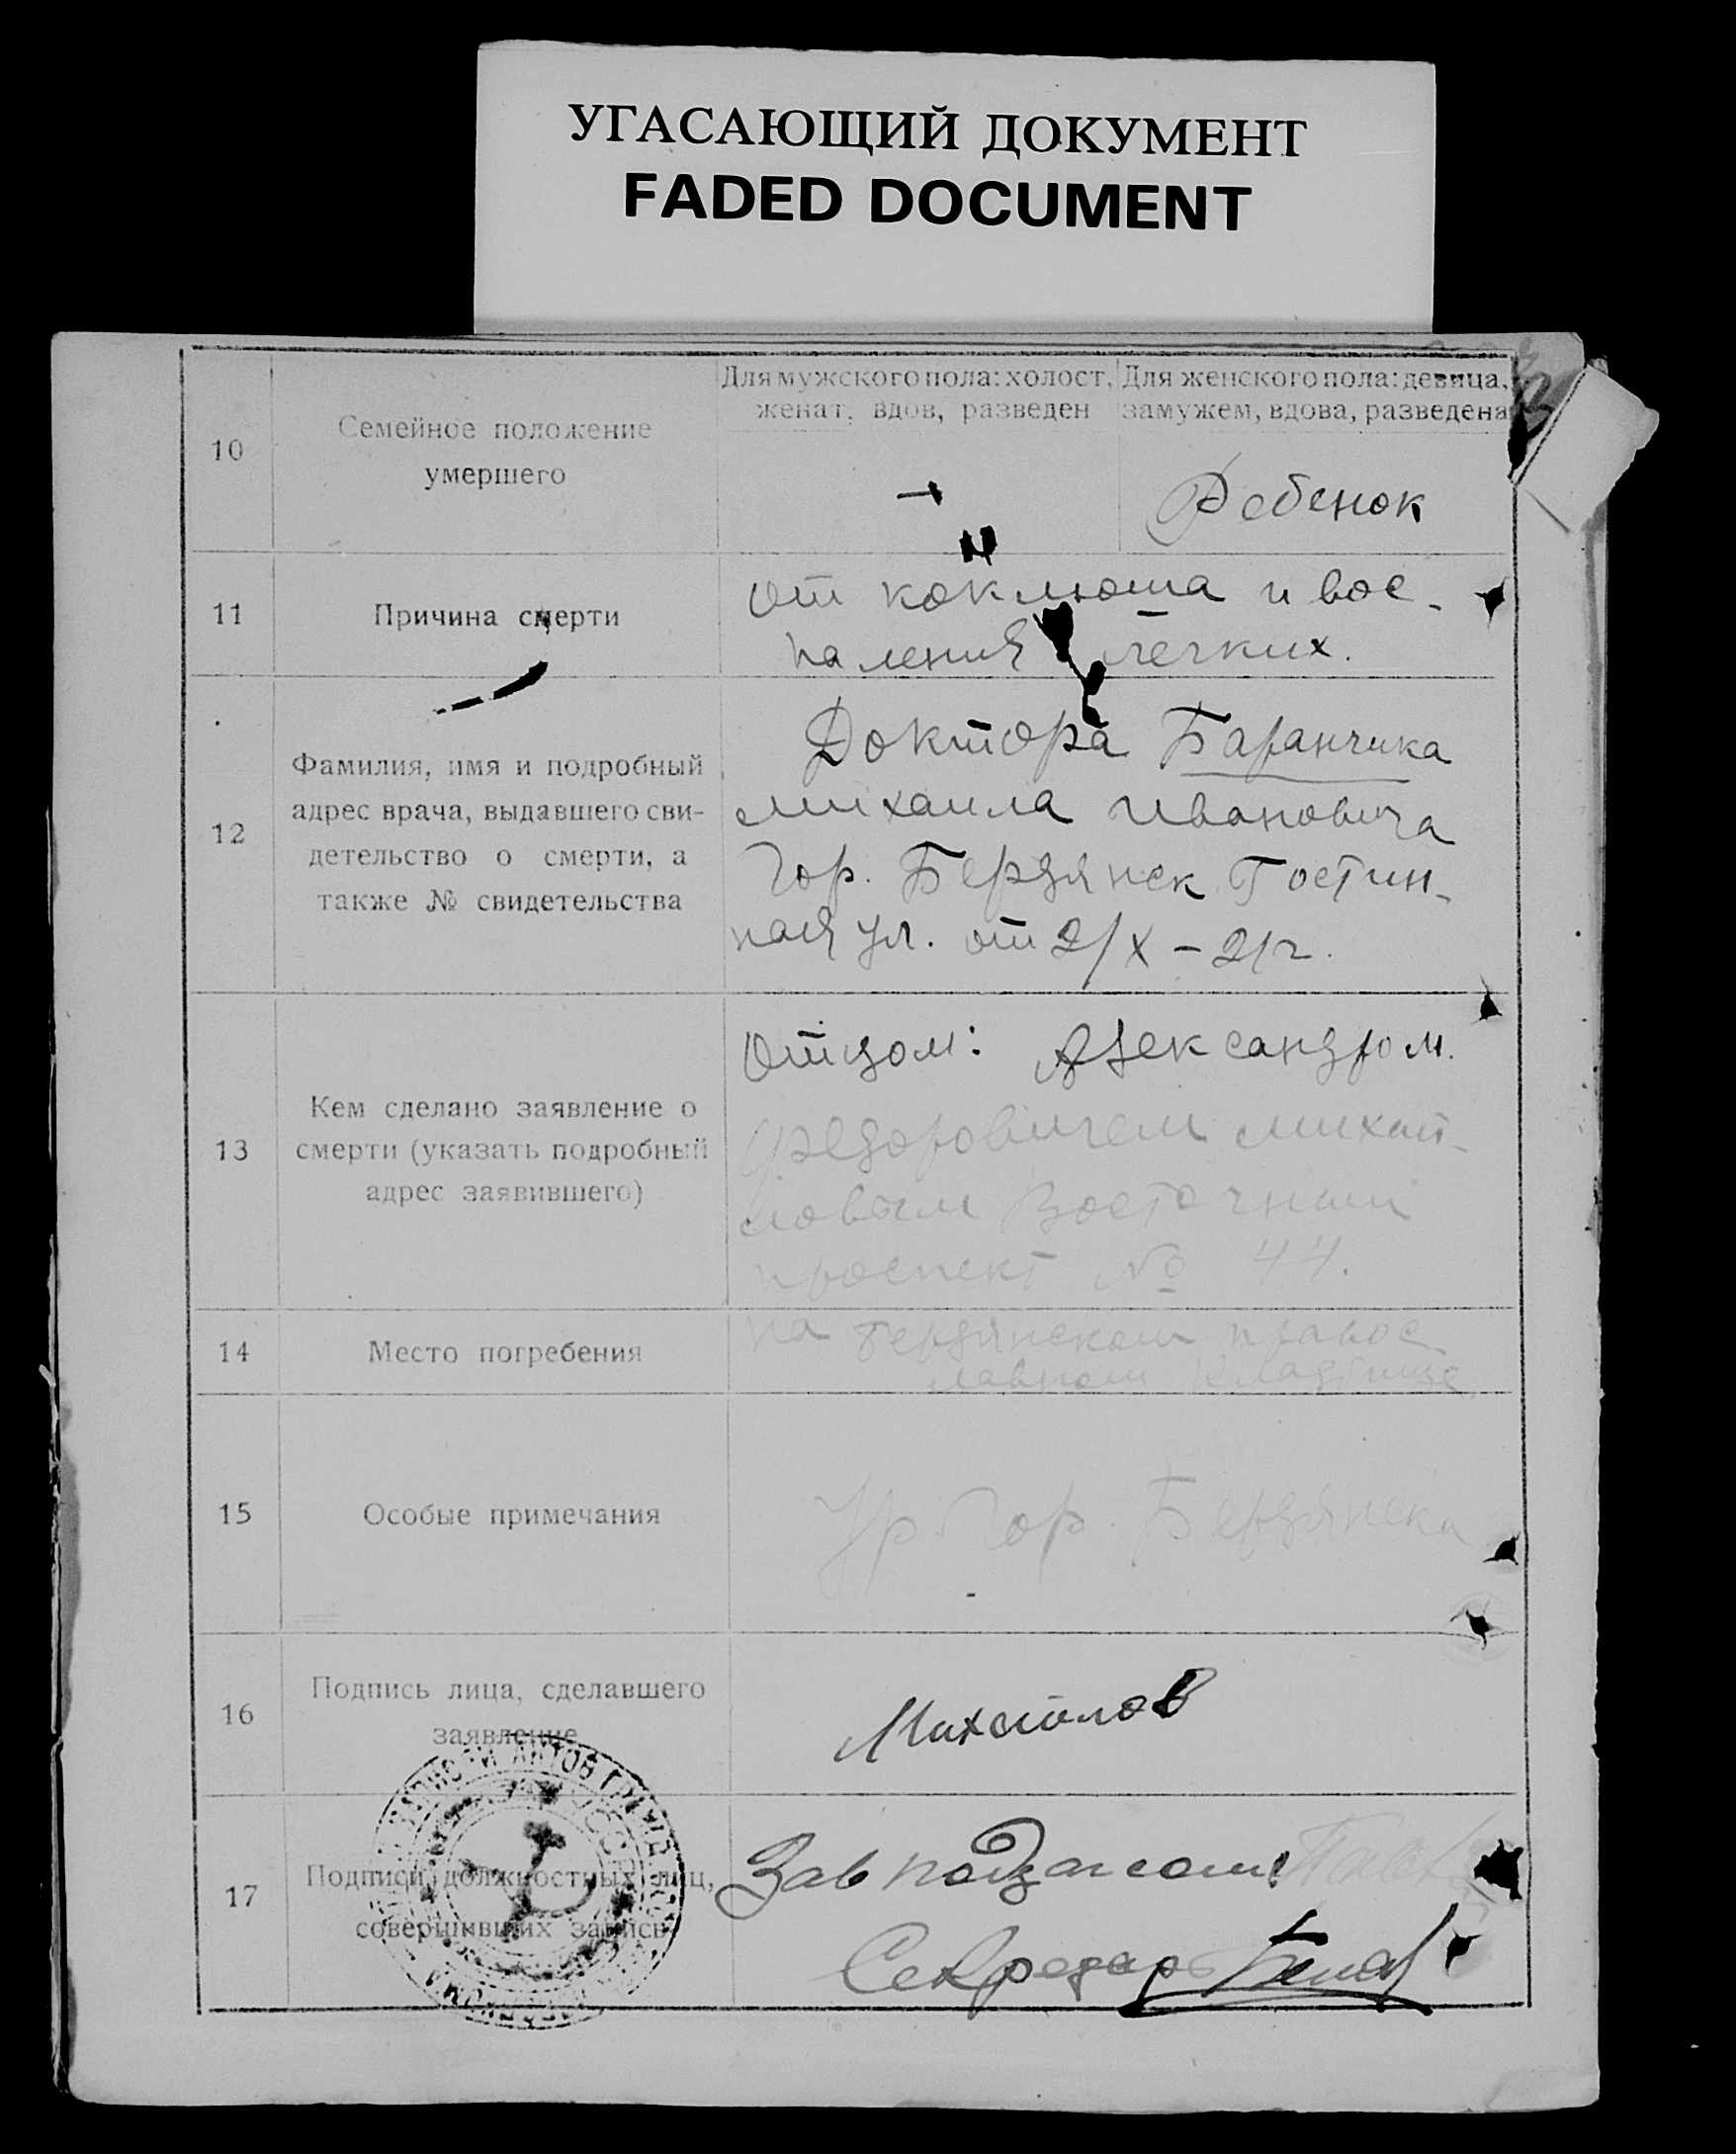 УГАСАЮЩИЙ ДОКУМЕНТ
FADED DOCUMENT
10
Семейное положение
умершего
Для мужского пола: холост,
женат, вдов, разведен
Для женского пола: девица,
замужем, вдова, разведена
Ребенок
11
Причина смерти
От коклюша и вос-
паления легких.
12
Фамилия, имя и подробный
адрес врача, выдавшего сви-
детельство о смерти, а
также № свидетельства
Доктора Баранчика
Михаила Ивановича
Гор. Бердянск Гостин-
ная ул. от 2/X – 21г.
13
Кем сделано заявление о
смерти (указать подробный
адрес заявившего)
Отцом: Александром
Федоровичем Михай-
ловым Восточный
проспект № 44.
14
Место погребения
на Бердянском правос
лавном кладбище
15
Особые примечания
Гор. Бердянска
16
Подпись лица, сделавшего
заявление
Михайлов
17
Подписи должностных лиц,
совершивших запись
Зав подзагсом:
Секретарь